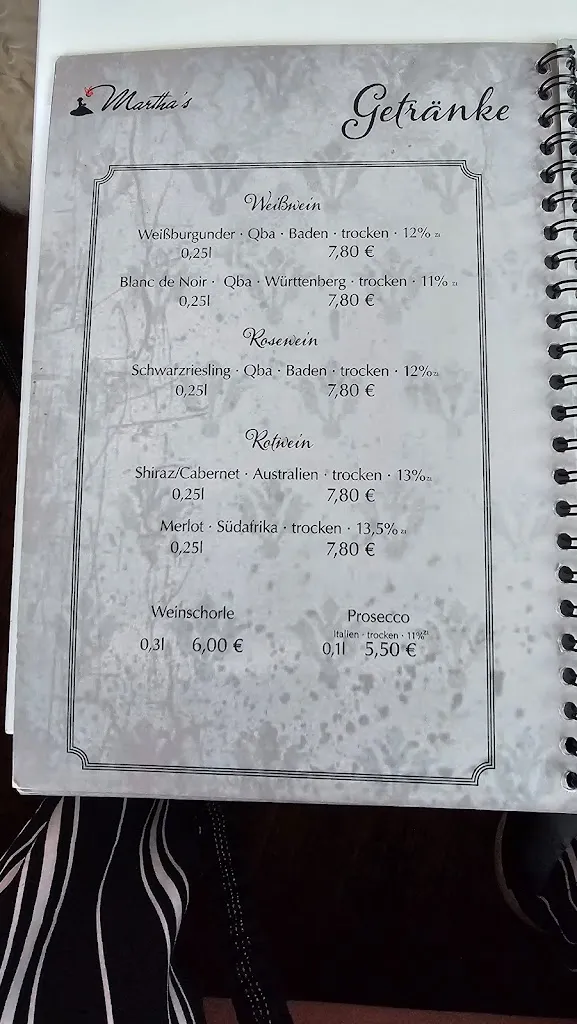 Martha's
Getränke
Weißwein
Weißburgunder · Qba · Baden · trocken · 12% zi
0,25l 7,80 €
Blanc de Noir · Qba · Württenberg · trocken · 11% zi
0,25l 7,80 €
Rosewein
Schwarzriesling · Qba · Baden · trocken · 12% zi
0,25l 7,80 €
Rotwein
Shiraz/Cabernet · Australien · trocken · 13% zi
0,25l 7,80 €
Merlot · Südafrika · trocken · 13,5% zi
0,25l 7,80 €
Weinschorle
0,3l 6,00 €
Prosecco
Italien · trocken · 11% zi
0,1l 5,50 €